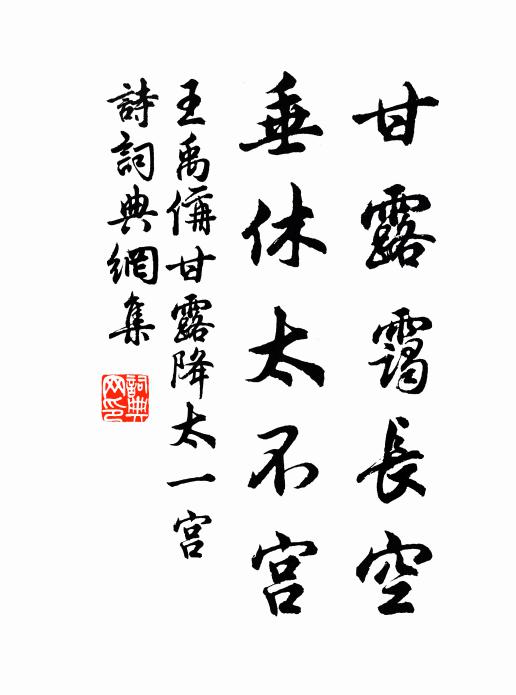 甘露靄長空
垂休太不宫
王禹偁甘露降太一宫
詩詞典網集
詞典网印